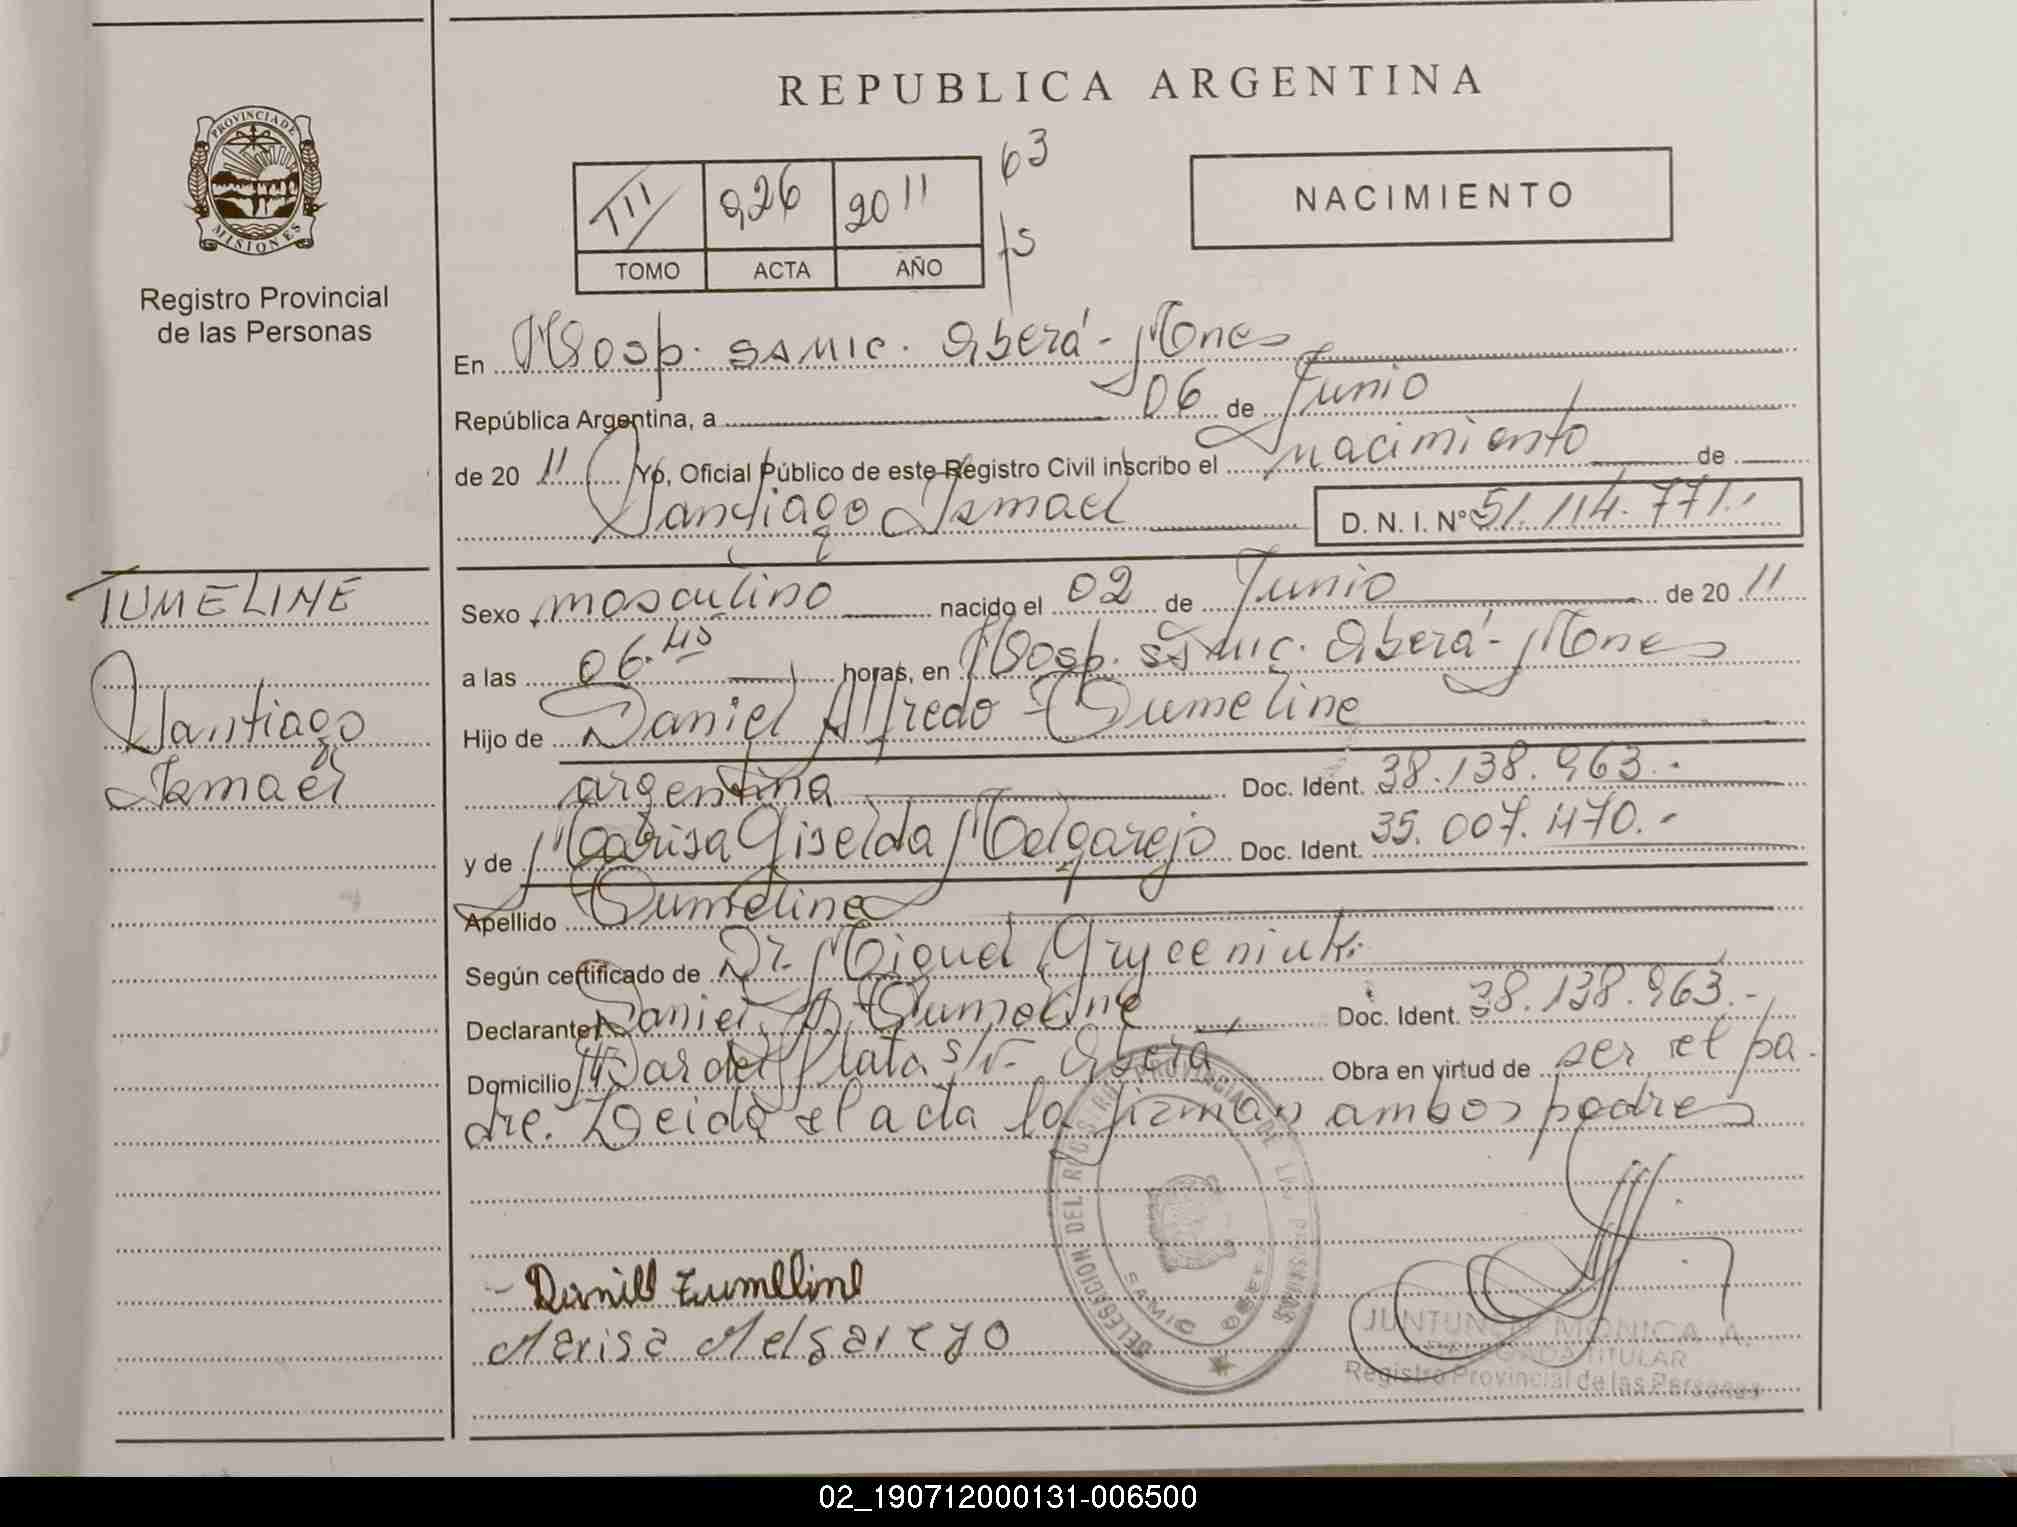 REPUBLICA ARGENTINA
PROVINCIA DE MISIONES
Registro Provincial
de las Personas
III 926 2011 63
TOMO ACTA AÑO fs
NACIMIENTO
En Hosp. SAMIC. Oberá - Mnes
República Argentina, a 06 de Junio
de 20 11 Yo, Oficial Público de este Registro Civil inscribo el nacimiento de
Santiago Ismael D. N. I. Nº 51.114.771.
TUMELINE
Santiago
Ismael
Sexo masculino nacido el 02 de Junio de 20 11
a las 06.45 horas, en Hosp. SAMIC. Oberá - Mnes
Hijo de Daniel Alfredo Tumeline
argentina Doc. Ident. 38.138.963.-
y de Marisa Giselda Melgarejo Doc. Ident. 35.007.470.-
Apellido Tumeline
Según certificado de Dr. Miguel Gryceniuk.
Declarante Daniel A. Tumeline Doc. Ident. 38.138.963.-
Domicilio Mar del Plata s/n- Oberá Obra en virtud de ser el pa.
dre. Leida el acta la firman ambos padres
DELEGACION DEL REGISTRO PROVINCIAL DE LAS PERSONAS
SAMIC
- Daniel Tumeline
Marisa Melgarejo
JUNTUNEN MONICA A.
DELEGADA TITULAR
Registro Provincial de las Personas
02_190712000131-006500